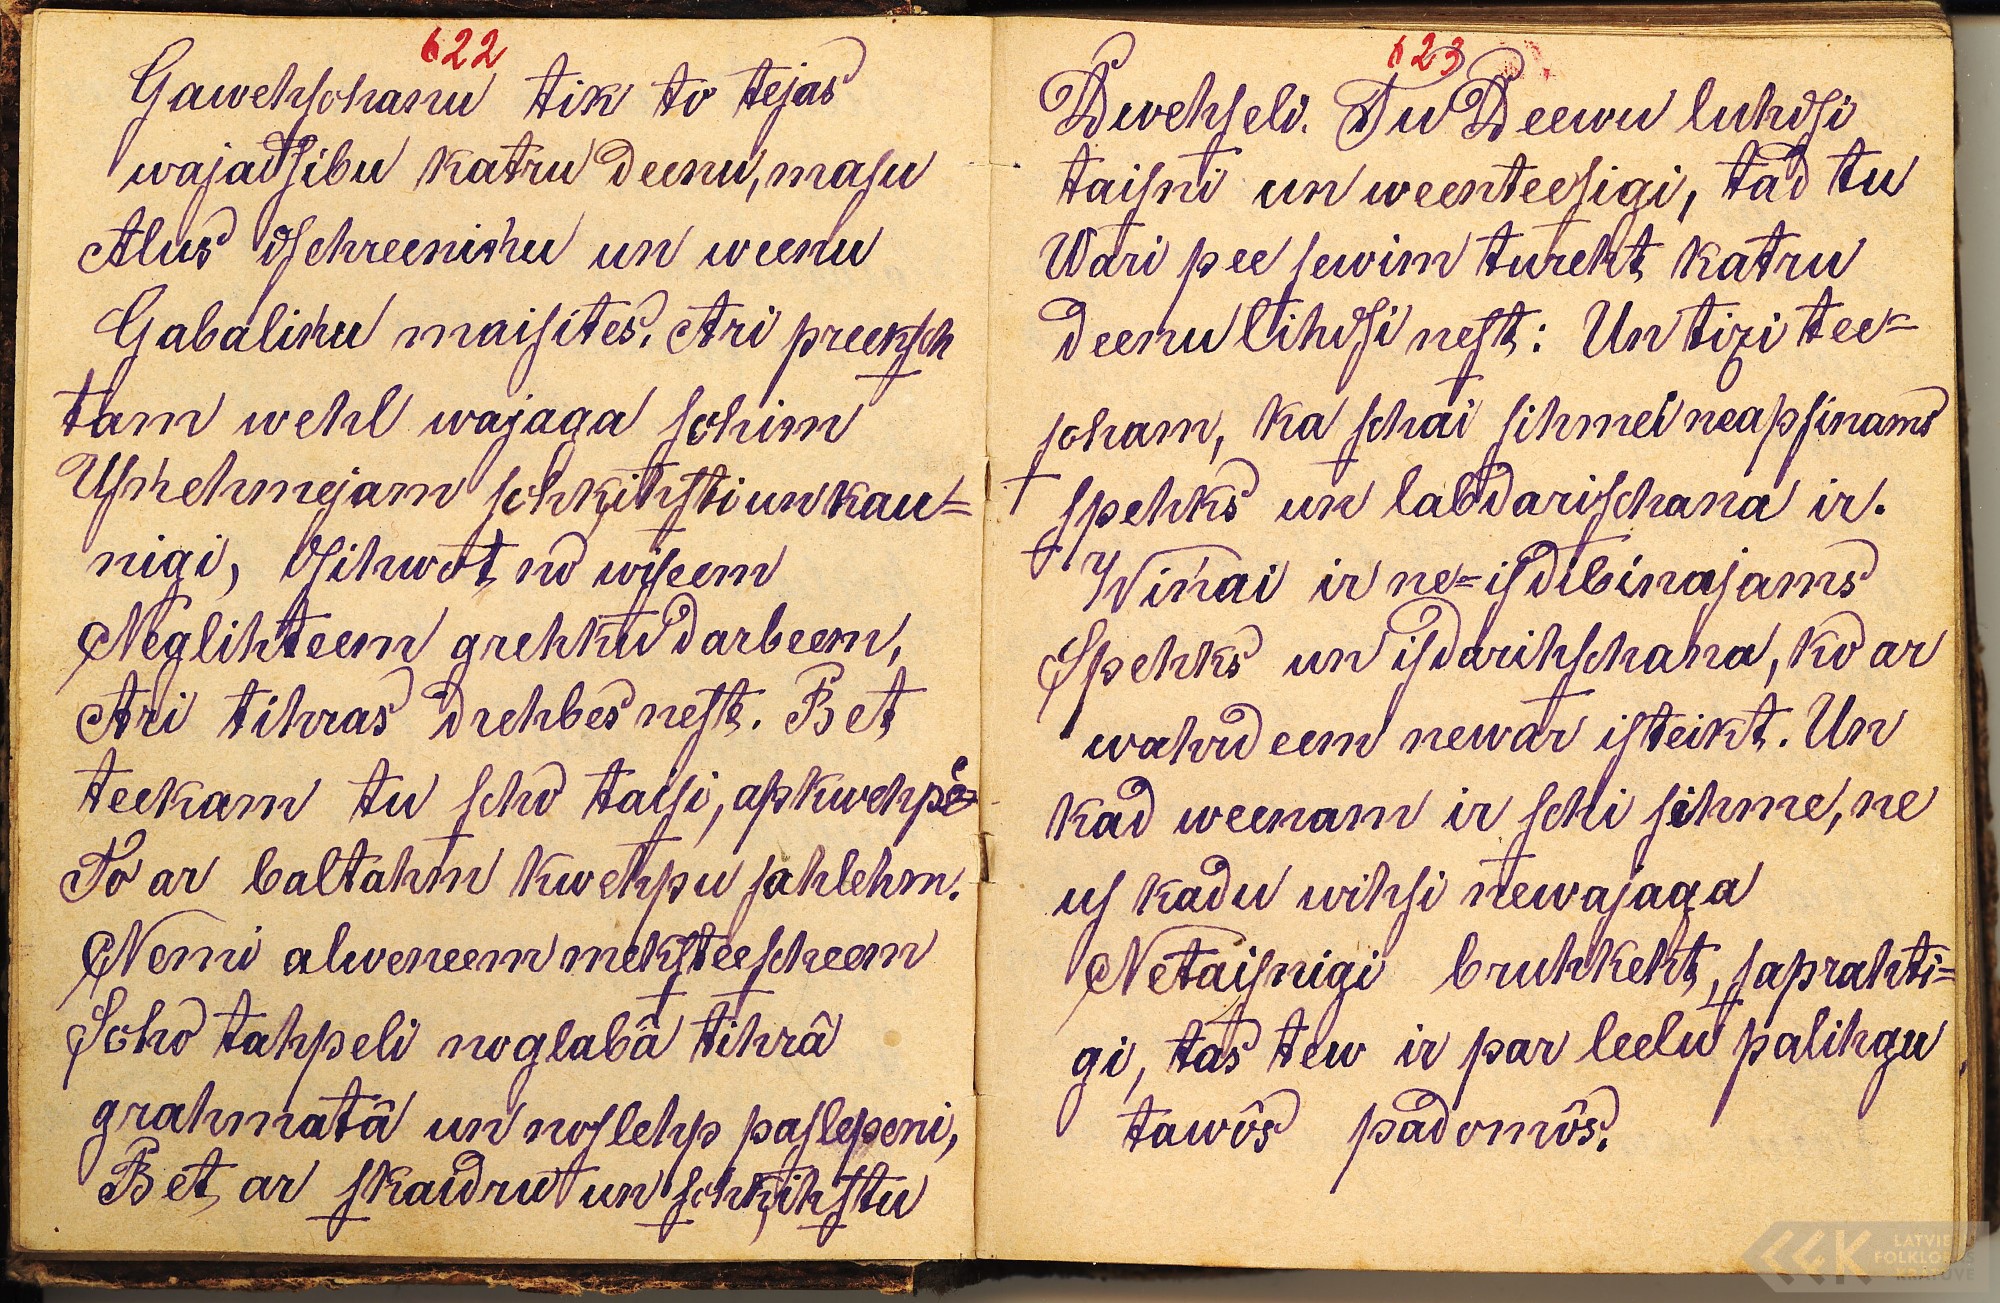 622
Gawehschanu tik to tejas
wajadsibu katru deenu, masu
Alus dschreeninu un weenu
Gabalinu maisites. Ari preeksch
tam wehl wajaga schim
Usnehmejam schkihsti un kau=
nigi, dsihwot no wiseem
Neglihteem grehku darbeem,
Ari tihras drehbes nest. Bet
teekam tu scho taisi, apkwehpê
To ar baltahm kwehpu sahlehm.
Nemi alweneem meksteescheem
Scho tahpeli noglabâ tihrâ
grahmatâ un noslehp paslepeni,
Bet ar skaidru un schkihstu
623
Dwehseli. Tu Deewu luhdsi
taisni un weenteesigi, tad tu
Wari pee sewim tureht katru
deenu lihdsi nest: Un tizi tee=
scham, ka schai sihmei neapsinams
spehks un labdarischana ir.
Winai ir ne=isdibinajams
Spehks un isdarihschana, ko ar
wahrdeem newar isteikt. Un
kad weenam ir schi sihme, ne
us kadu wihsi newajaga
Netaisnigi bruhkeht, saprahti=
gi, tas tew ir par leelu palihgu
tawôs padomôs.
LATVIEŠU
FOLKLORAS
KRĀTUVE